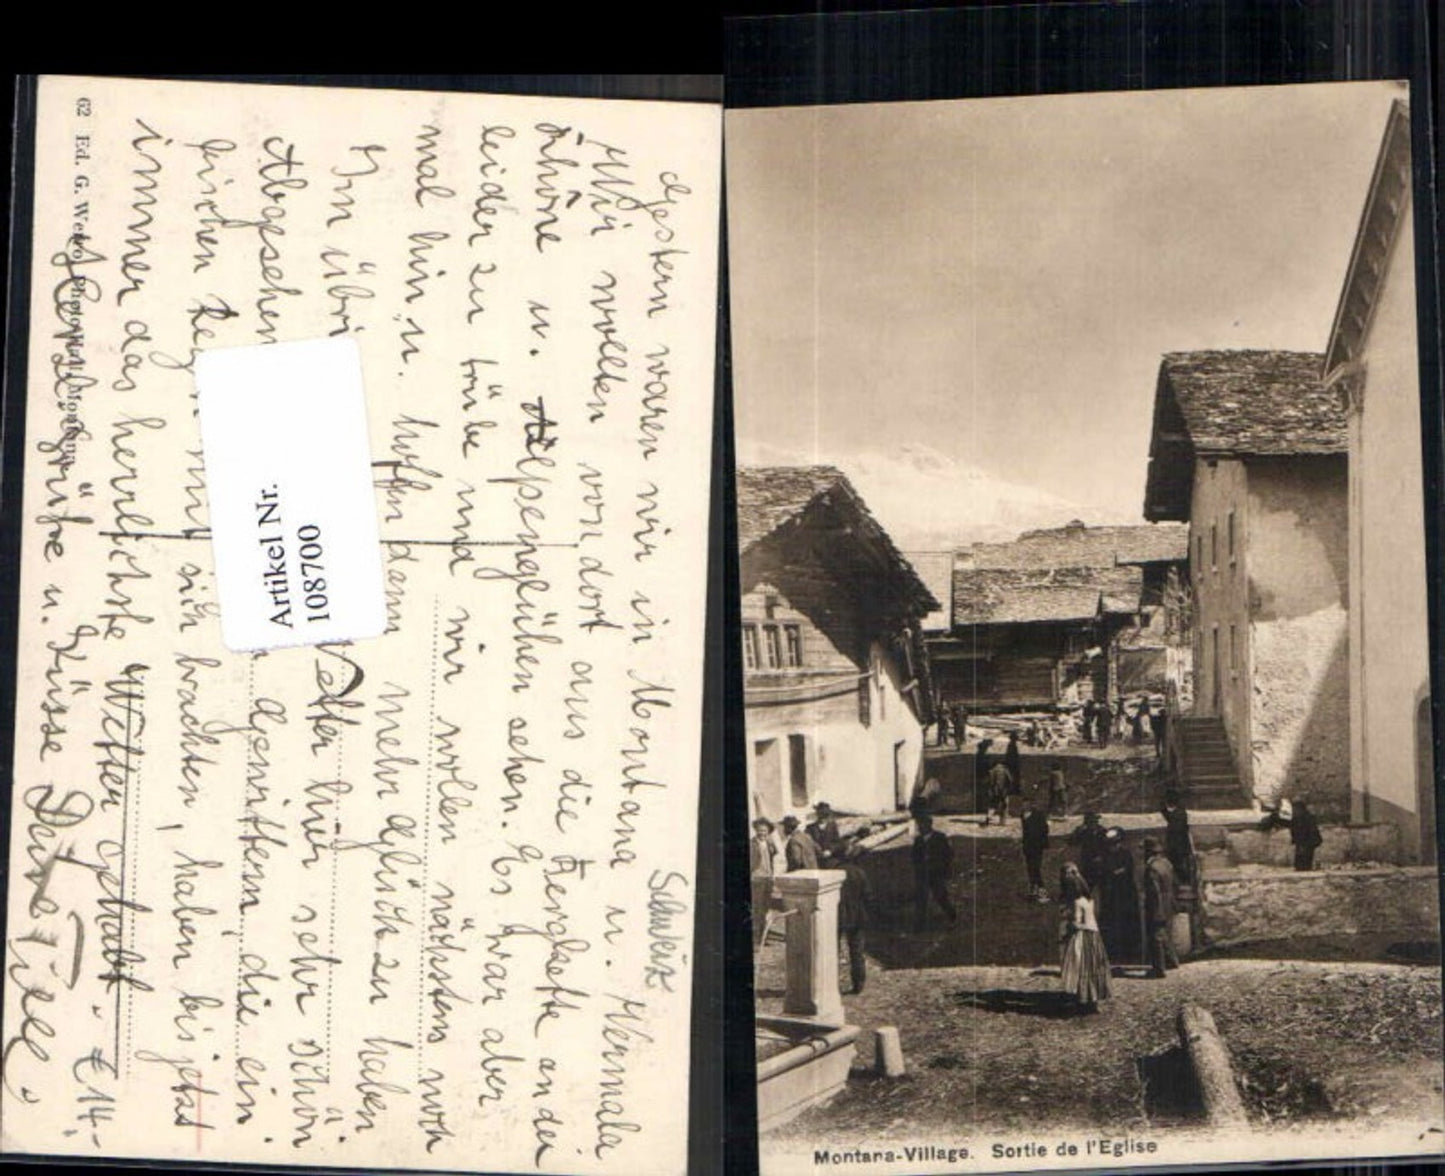 Schweiz
Gestern waren wir in Montana u. Vermala
Wir wollten von dort aus die Bergkette an der
Rhône u. Alpenglühen sehen. Es war aber
leider zu trübe und wir wollen nächstens noch
mal hin u. hoffen dann mehr Glück zu haben
Im übri Wetter hier sehr schön.
Abgesehen Gewittern die ein
bischen Reg mit sich brachten, haben bis jetzt
immer das herrlichste Wetter gehabt.
Herzl. Grüße u. Küsse Deine Tilly.
€ 14,-
62 Ed. G. Wetro, Photogr., Montana
Artikel Nr.
108700
Montana-Village. Sortie de l'Eglise